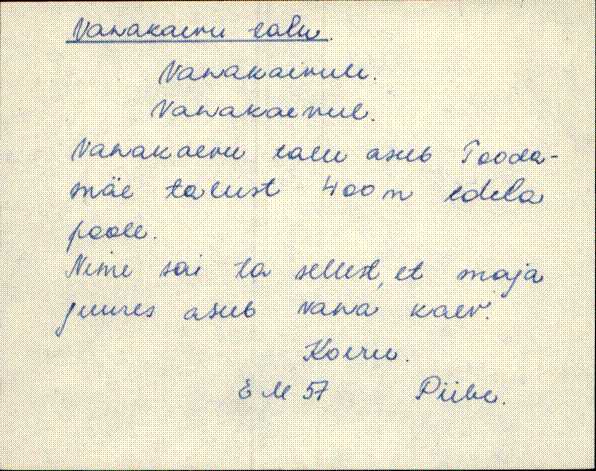 Vanakaevu talu.
Vanakaevule.
Vanakaevul.
Vanakaevu talu asub Tooda-
mäe talust 400 m edela
poole.
Nime sai ta sellest, et maja
juures asub vana kaev.
Koeru.
E M 57 Piibe.